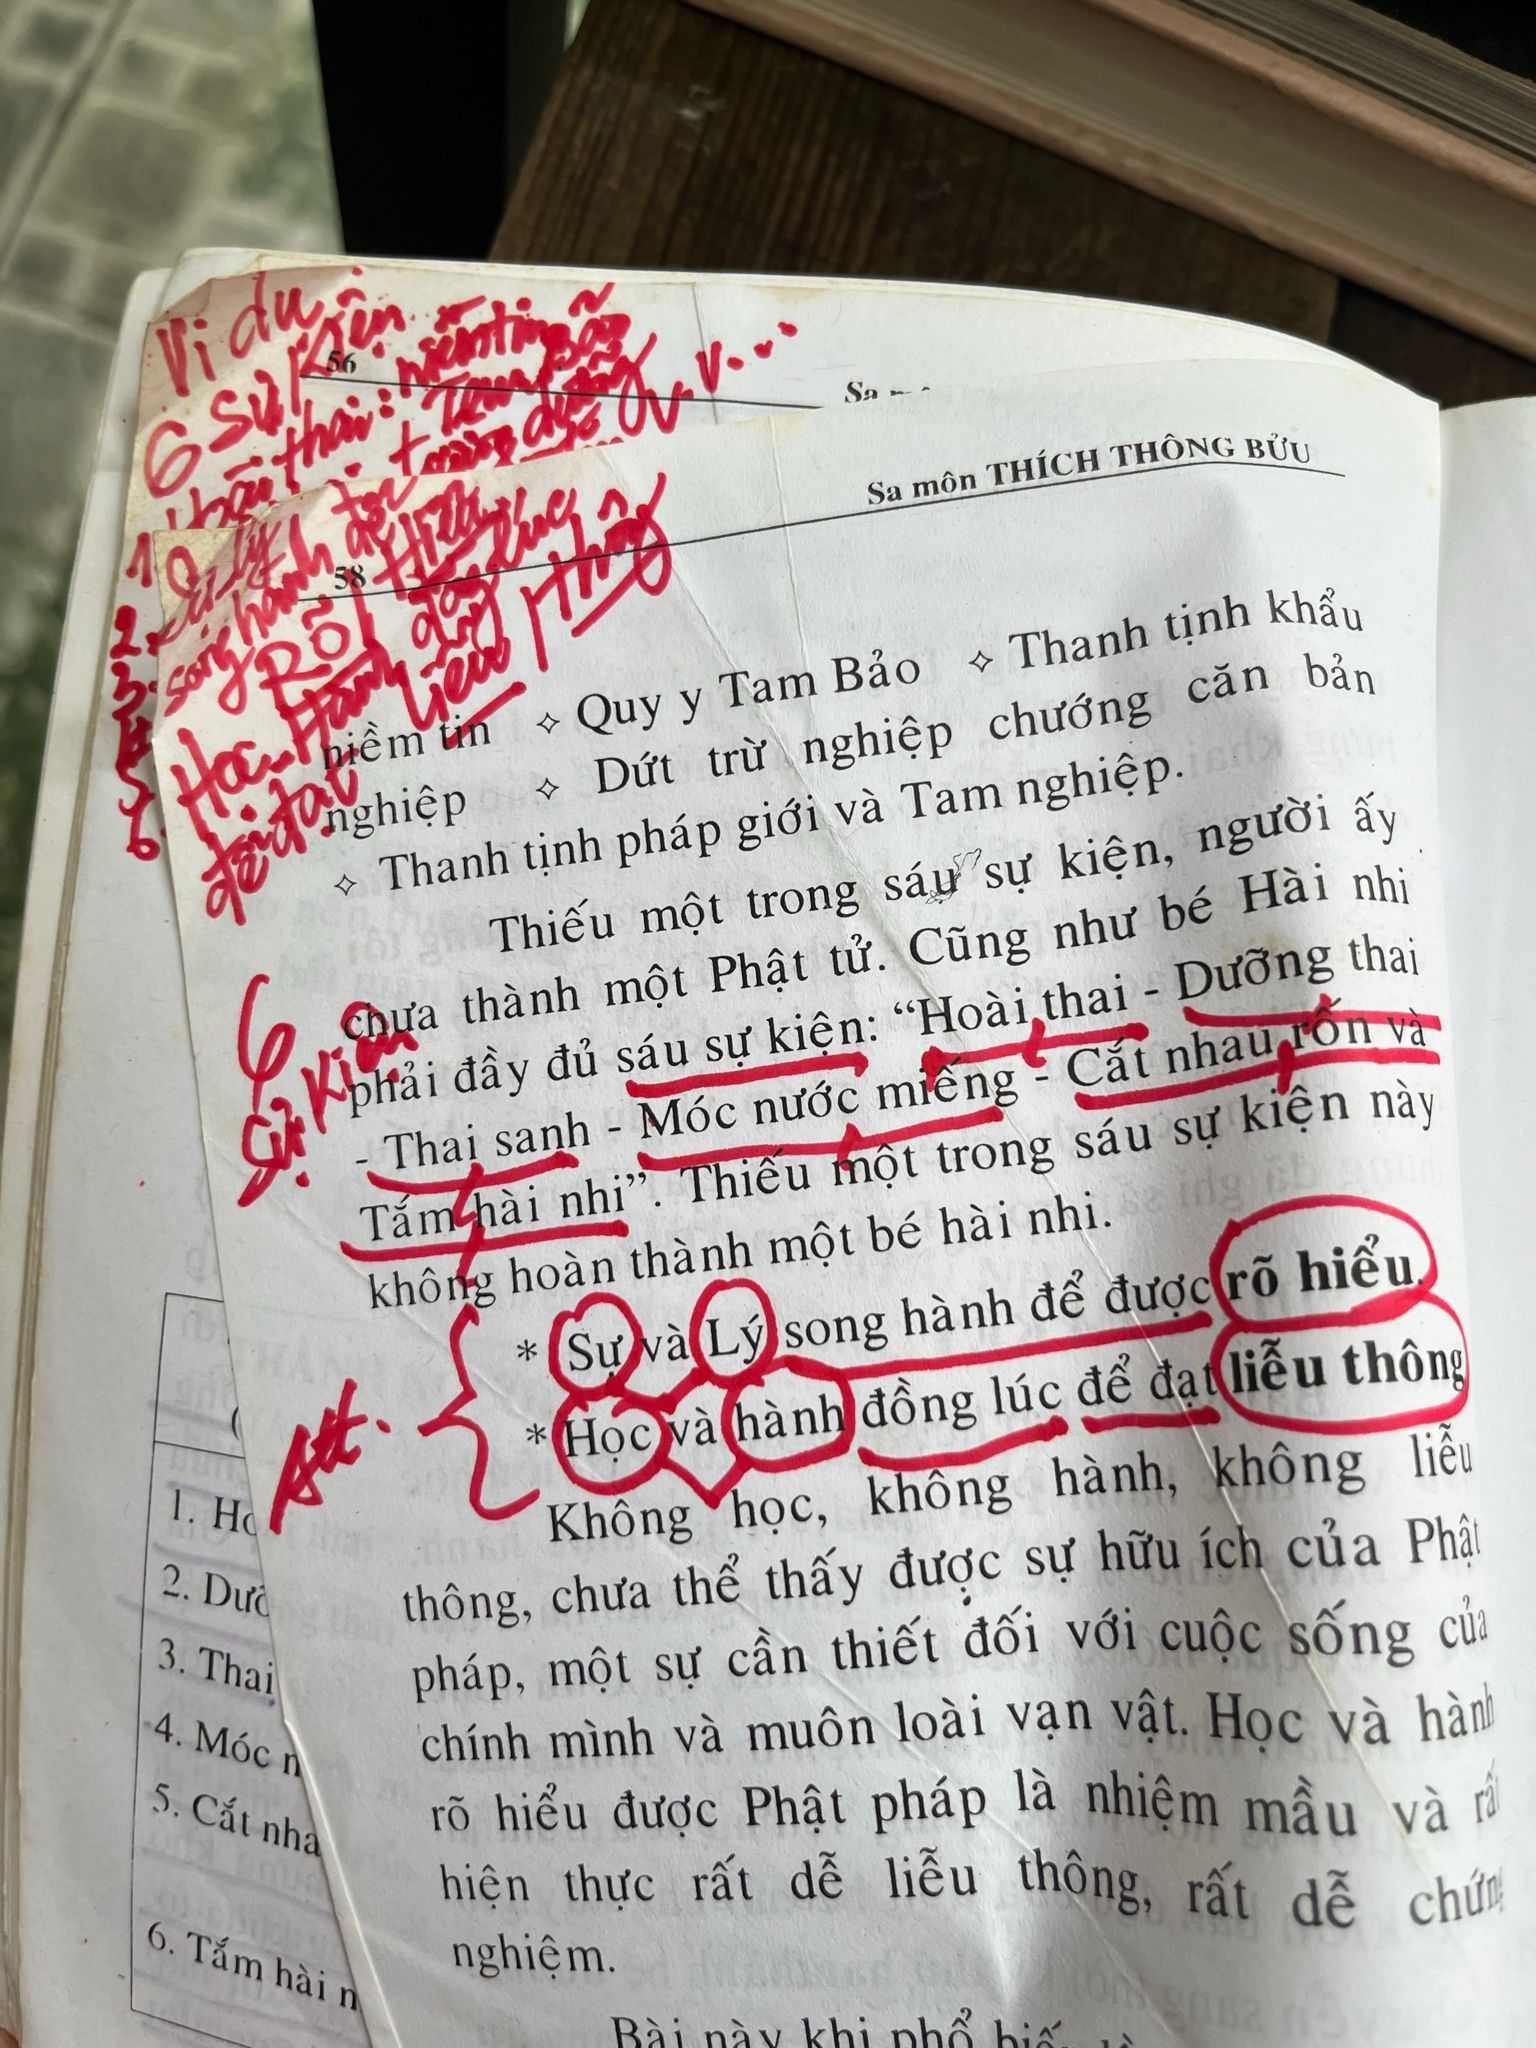 Ví dụ
6 Sự Kiện
56
Sa
thai: niềm tin
+ Tam Bảo
v.v....
Sự Lý
song hành để
RÕ HIỂU
Học - Hành đồng lúc
để đạt liễu thông
Sa môn THÍCH THÔNG BỬU
58
niềm tin ✧ Quy y Tam Bảo ✧ Thanh tịnh khẩu
nghiệp ✧ Dứt trừ nghiệp chướng căn bản
✧ Thanh tịnh pháp giới và Tam nghiệp.
Thiếu một trong sáu sự kiện, người ấy
chưa thành một Phật tử. Cũng như bé Hài nhi
phải đầy đủ sáu sự kiện: “Hoài thai - Dưỡng thai
- Thai sanh - Móc nước miếng - Cắt nhau rốn và
Tắm hài nhi”. Thiếu một trong sáu sự kiện này
không hoàn thành một bé hài nhi.
6
Sự Kiện
* Sự và Lý song hành để được rõ hiểu.
* Học và hành đồng lúc để đạt liễu thông
Không học, không hành, không liễu
thông, chưa thể thấy được sự hữu ích của Phật
pháp, một sự cần thiết đối với cuộc sống của
chính mình và muôn loài vạn vật. Học và hành
rõ hiểu được Phật pháp là nhiệm mầu và rất
hiện thực rất dễ liễu thông, rất dễ chứng
nghiệm.
Bài này khi phổ
1. Ho
2. Dưỡ
3. Thai
4. Móc n
5. Cắt nha
6. Tắm hài n